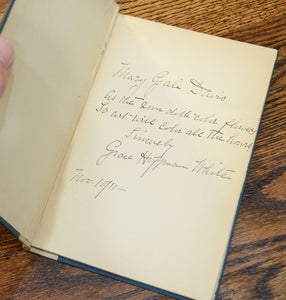 Mary Gale Davis
As the sun doth color flowers
So art will color all the hours
Sincerely
Grace Hoffman White
Nov. 1911—